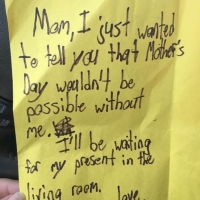 Mom, I just wanted
to tell you that Mother's
Day wouldn't be
possible without
me.
I'll be waiting
for my present in the
living room.
love,